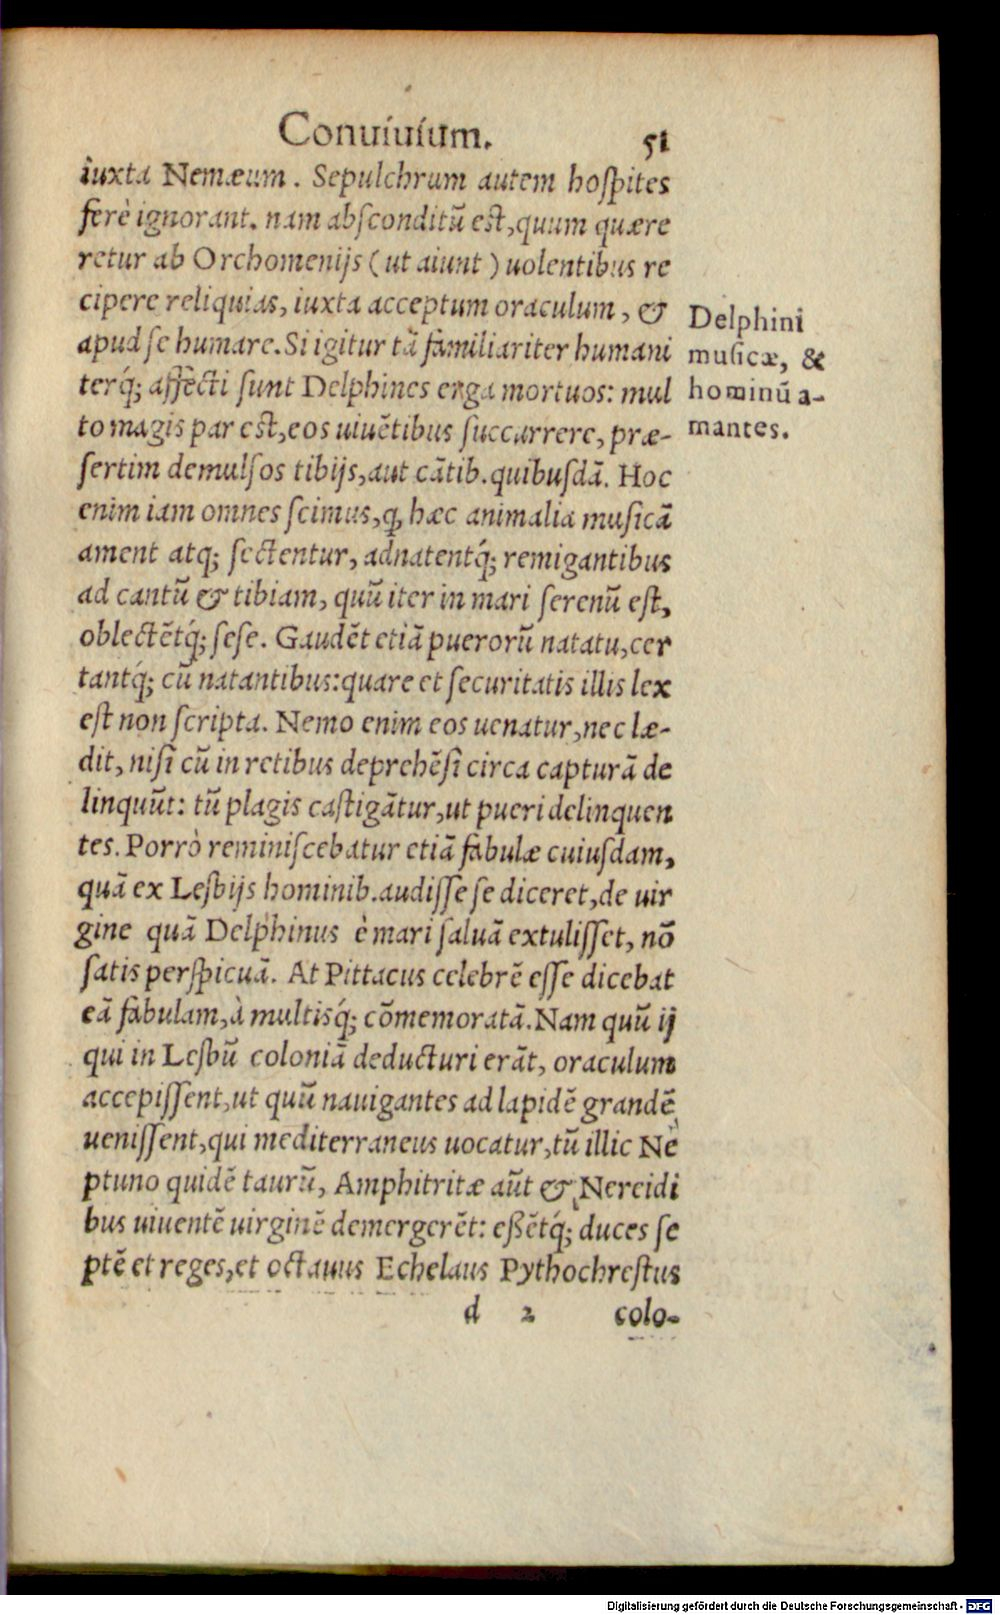 Conuiuium. 51
iuxta Nemæum. Sepulchrum autem hoſpites
ferè ignorant. nam abſconditũ eſt, quum quære
retur ab Orchomenijs (ut aiunt) uolentibus re
cipere reliquias, iuxta acceptum oraculum, &
apud ſe humare. Si igitur tã familiariter humani
terq́; affecti ſunt Delphines erga mortuos: mul
to magis par eſt, eos uiuẽtibus ſuccurrere, præ-
ſertim demulſos tibijs, aut cãtib. quibuſdã. Hoc
enim iam omnes ſcimus, ꝙ hæc animalia muſicã
ament atq; ſectentur, adnatentq́; remigantibus
ad cantũ & tibiam, quũ iter in mari ſerenũ eſt,
oblectẽtq́; ſeſe. Gaudẽt etiã puerorũ natatu, cer
tantq́; cũ natantibus: quare et ſecuritatis illis lex
eſt non ſcripta. Nemo enim eos uenatur, nec læ-
dit, niſi cũ in retibus deprehẽſi circa capturã de
linquũt: tũ plagis caſtigãtur, ut pueri delinquen
tes. Porrò reminiſcebatur etiã fabulæ cuiuſdam,
quã ex Leſbijs hominib. audiſſe ſe diceret, de uir
gine quã Delphinus è mari ſaluã extuliſſet, nõ
ſatis perſpicuã. At Pittacus celebrẽ eſſe dicebat
eã fabulam, à multisq́; cõmemoratã. Nam quũ ij
qui in Leſbũ coloniã deducturi erãt, oraculum
accepiſſent, ut quũ nauigantes ad lapidẽ grandẽ
ueniſſent, qui mediterraneus uocatur, tũ illic Ne
ptuno quidẽ taurũ, Amphitritæ aũt & Nereidi
bus uiuentẽ uirginẽ demergerẽt: eßẽtq́; duces ſe
ptẽ et reges, et octauus Echelaus Pythochreſtus
d 2 colo-
Delphini
muſicæ, &
hominũ a-
mantes.
Digitalisierung gefördert durch die Deutsche Forschungsgemeinschaft - DFG